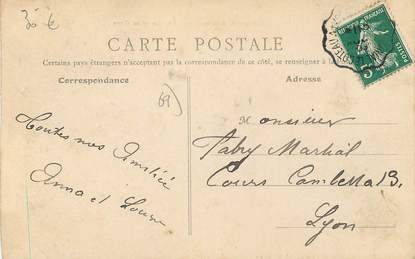 30 €
CARTE POSTALE
Certains pays étrangers n'acceptant pas la correspondance de ce côté, se renseigner à la
Correspondance
Adresse
69
Toutes nos Amitiés
Anna et Louise
Monsieur
Fabry Martial
Cours Gambetta 13.
Lyon
POSTES
5